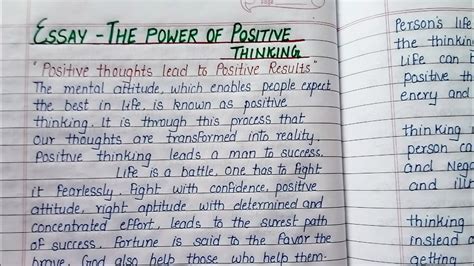 ESSAY - THE POWER OF POSITIVE
THINKING
"Positive thoughts lead to Positive Results"
The mental attitude, which enables people expect
the best in life, is known as positive
thinking. It is through this process that
our thoughts are transformed into reality.
Positive thinking leads a man to success.
Life is a battle, one has to fight
it fearlessly. Fight with confidence, positive
attitude, right aptitude with determined and
concentrated effort, leads to the surest path
of success. Fortune is said to the favor the
brave. God also help those who help them-
Person's life
the thinking
Life can b
Positive th
enery and
thinking
person ca
and Nega
and ill
thinking
instead
help othe